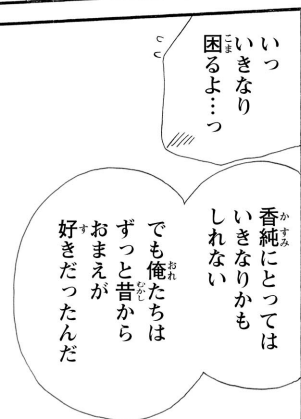 いっ
いきなり
困るよ…っ
香純にとっては
いきなりかも
しれない
でも俺たちは
ずっと昔から
おまえが
好きだったんだ